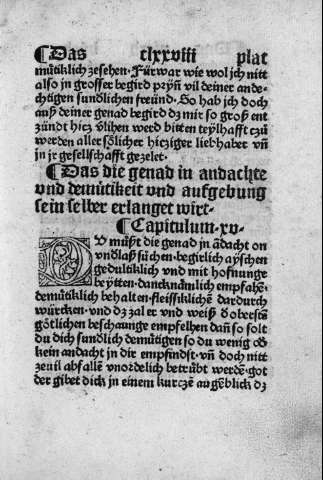 ¶Das clxxviii plat
mütiklich zesehen. Fürwar wie wol jch nitt
also in grosser begird prynñ vil deiner ande-
chtigen sundlichen freünd. So hab jch doch
auß deiner genad begird dz mir so groß ent
zündt hicz vlihen werd bitten teylhafft czü
werden aller sölicher hicziger liebhaber vñ
jn jr gesellschafft gezelet.
¶Das die genad in andachte
vnd demütikeit vnd aufgebung
sein selber erlanget wirt.
¶Capitulum. xv.
DU müßt die genad jn ādacht on
vndlaß süchen. begirlich ayschen
gedultiklich vnd mit hofnunge
beytten. dancknämlich empfahē.
demütiklich behalten. fleissiklichē dardurch
würcken. vnd dz zal er vnd weiß d̄ obersten
götlichen beschaunge empfelhen dañ so solt
du dich sundlich demütigen so du wenig oð
kein andacht jn dir empfindst. vñ doch nitt
zeuil abfallē vnordelich betrübt werdē. got
der gibet dick jn einem kurczē augēblick dz